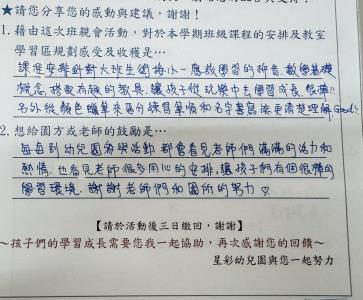 ★請您分享您的感動與建議，謝謝！
1. 藉由這次班親會活動，對於本學期班級課程的安排及教室
學習區規劃感受及收穫是…
課程安排針對大班生銜接小一應該學習的拼音、數學基礎
概念，搭配有趣的教具，讓孩子從玩樂中去學習成長 很棒!!
另外從顏色蠟筆來區分練習筆順和名字書寫法更清楚理解 Good!!
2. 想給園方或老師的鼓勵是…
每每到幼兒園參與活動 都會看見老師們滿滿的活力和
熱情，也看見老師很多用心的安排，讓孩子們有個很棒的
學習環境，謝謝老師們和園所的努力♡
【請於活動後三日繳回，謝謝】
～孩子們的學習成長需要您我一起協助，再次感謝您的回饋～
星彩幼兒園與您一起努力